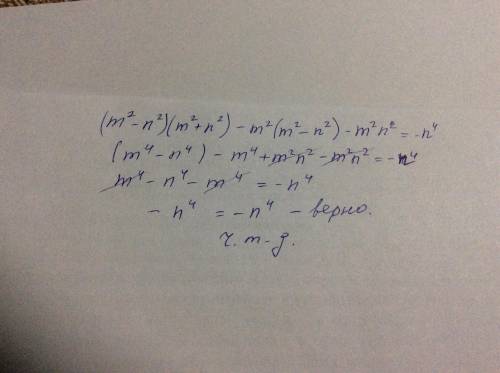 (m²-n²)(m²+n²)-m²(m²-n²)-m²n²=-n⁴
(m⁴-n⁴)-m⁴+m²n²-m²n²=-n⁴
m⁴-n⁴-m⁴=-n⁴
-n⁴=-n⁴-верно.
ч.т-д.